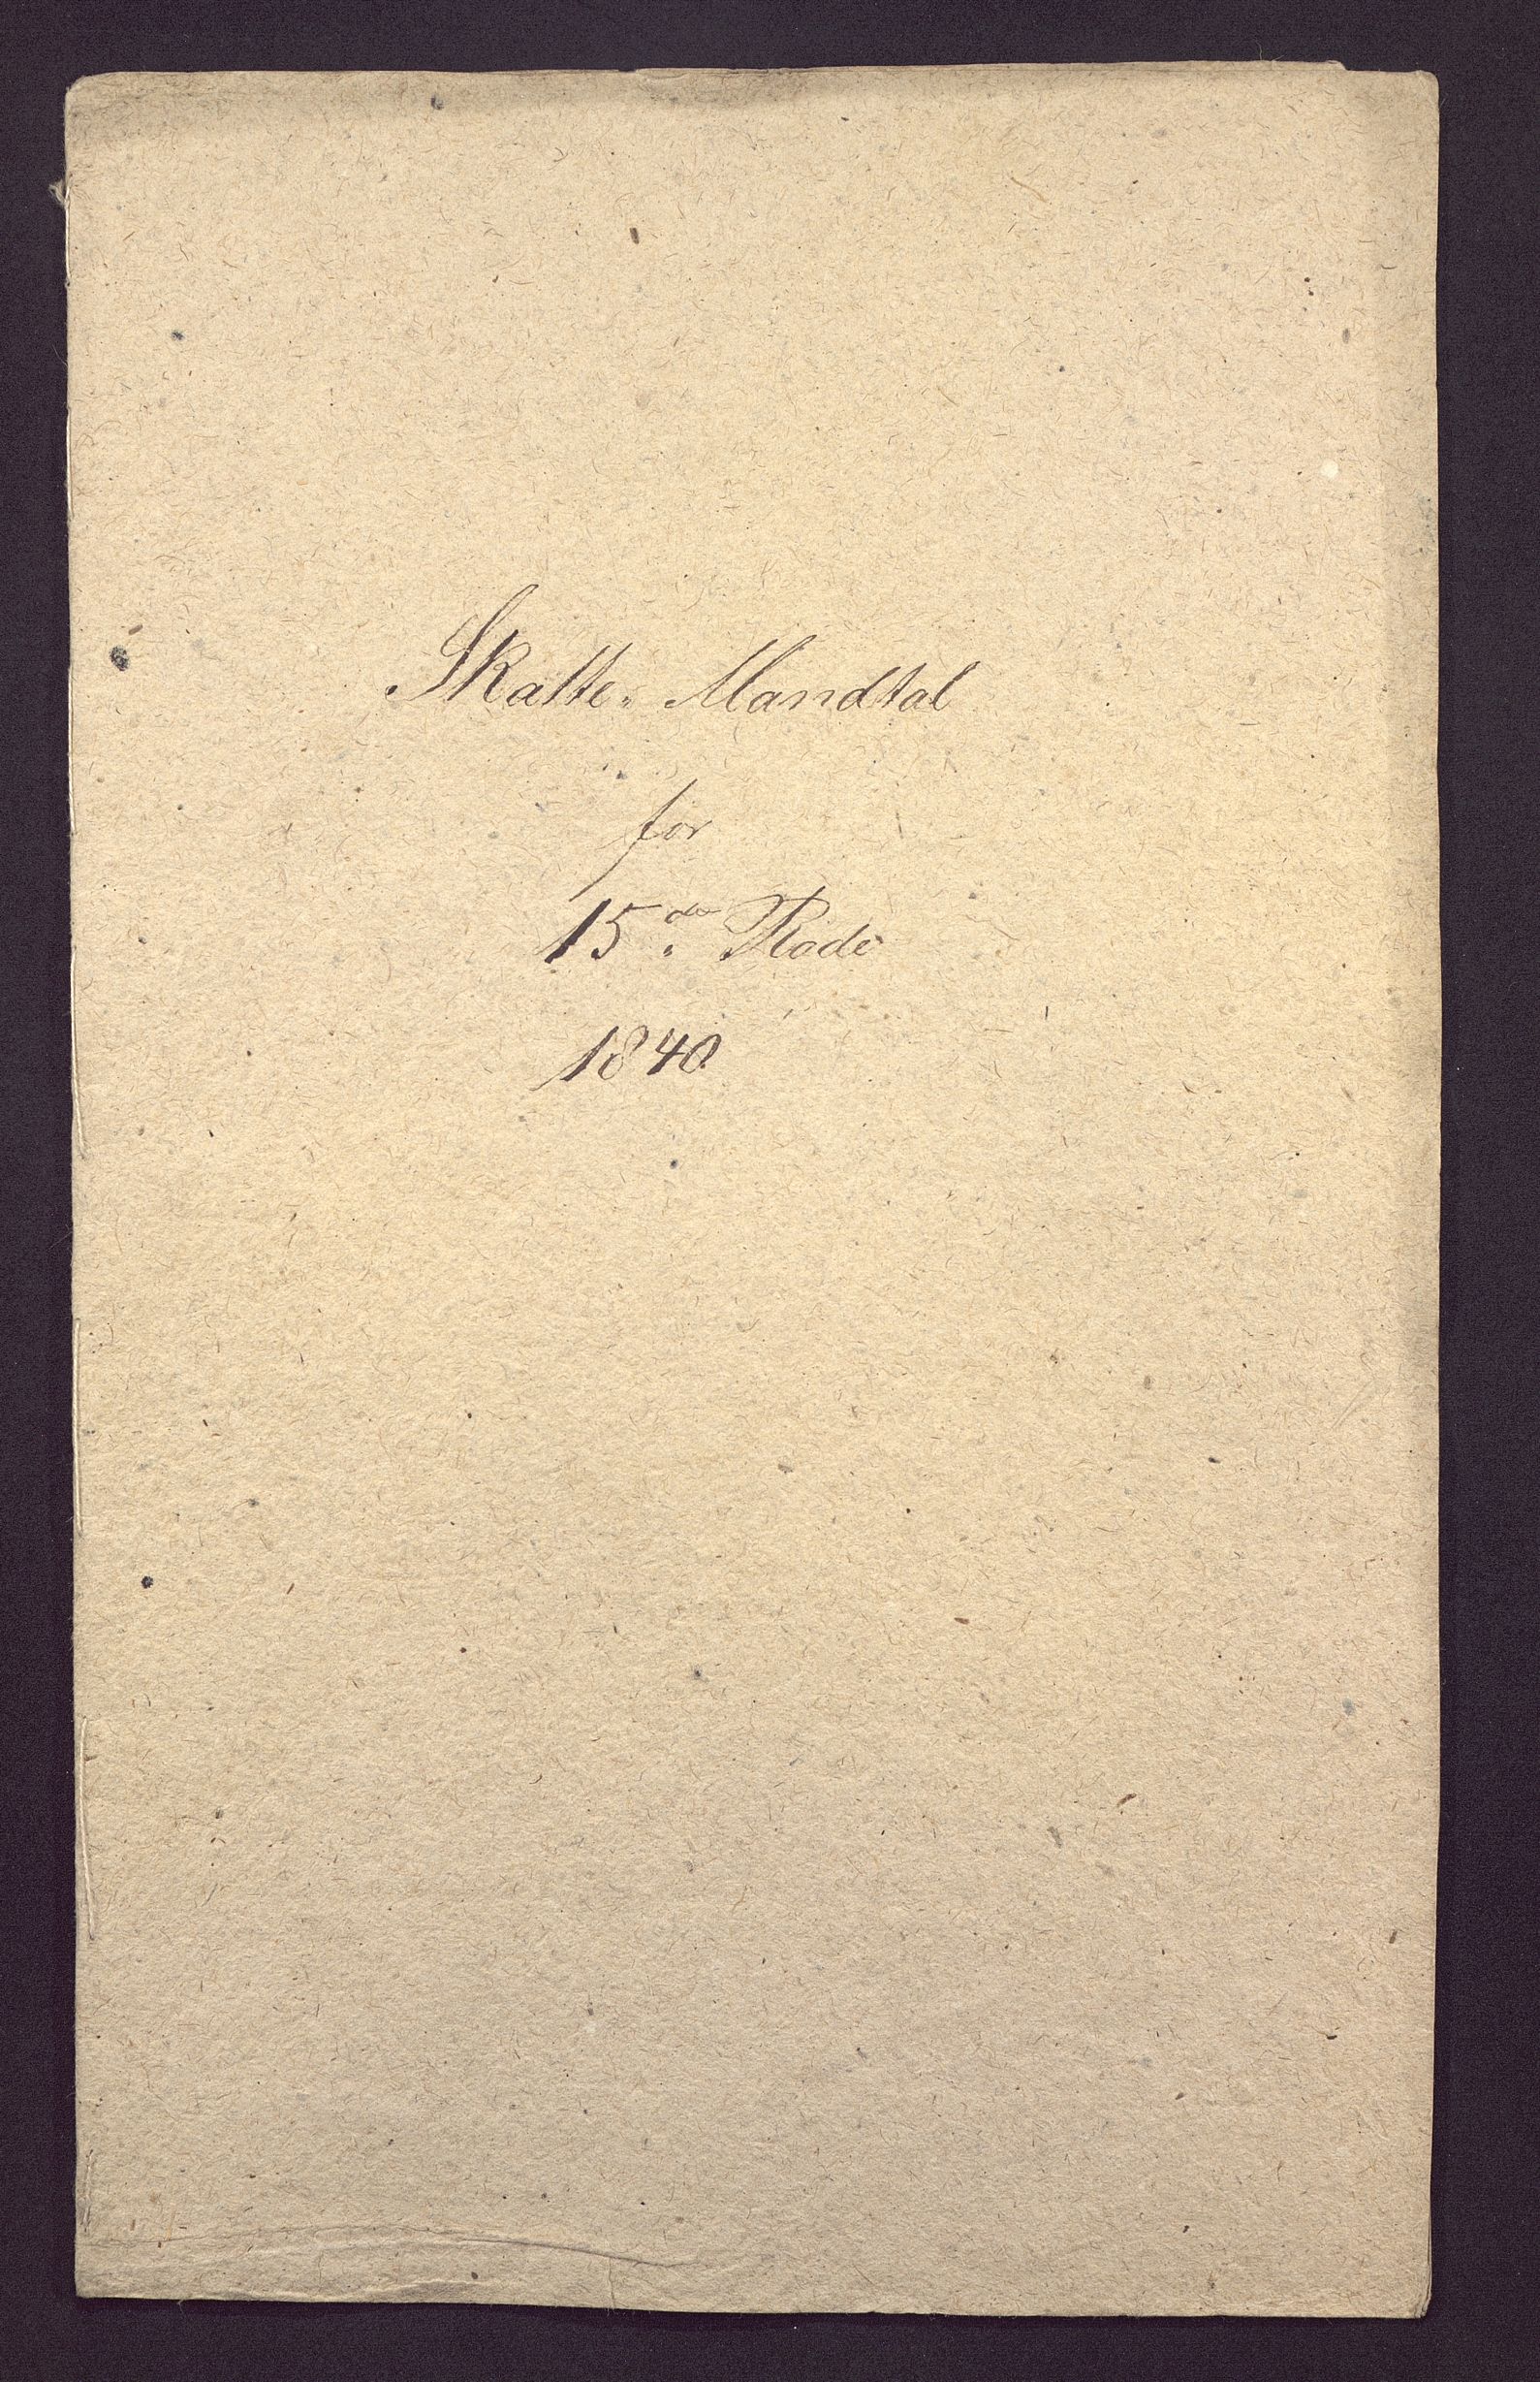 Skatte- Mandtal
for
15de Rode
1840